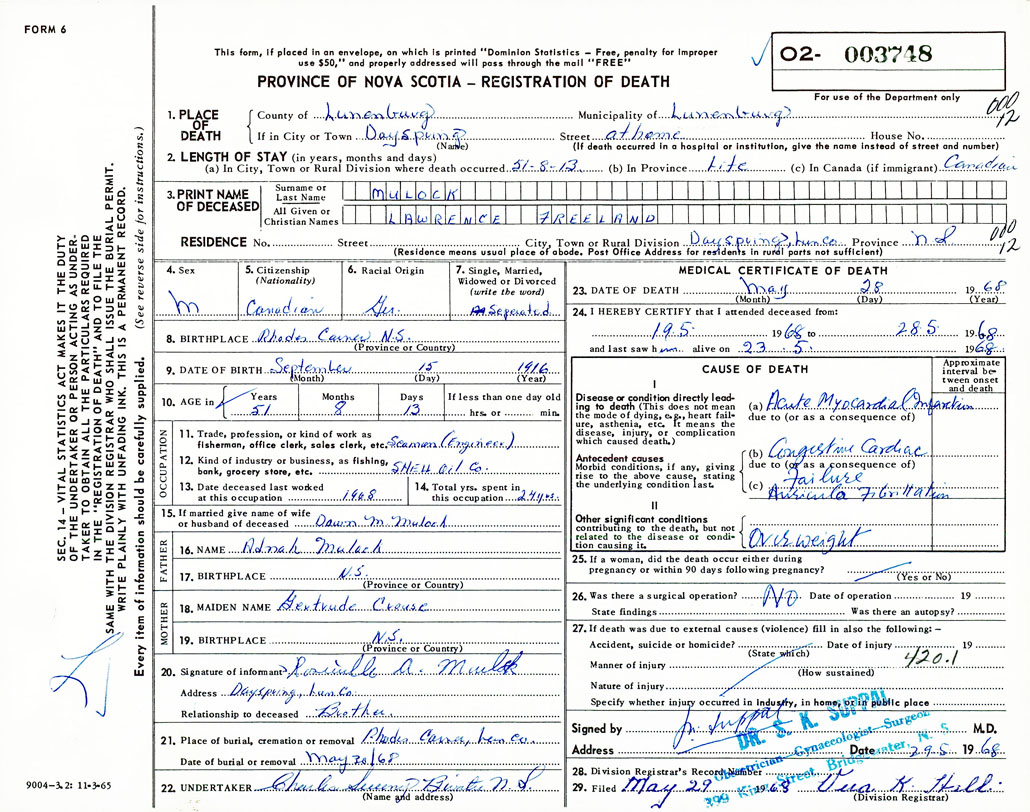 FORM 6
This form, if placed in an envelope, on which is printed "Dominion Statistics – Free, penalty for improper
use $50," and properly addressed will pass through the mail "FREE"
PROVINCE OF NOVA SCOTIA – REGISTRATION OF DEATH
O2- 003748
For use of the Department only
000
12
1. PLACE OF DEATH
County of Lunenburg Municipality of Lunenburg
If in City or Town Dayspring Street at home House No.
(Name) (If death occurred in a hospital or institution, give the name instead of street and number)
2. LENGTH OF STAY (in years, months and days)
(a) In City, Town or Rural Division where death occurred 51-8-13 (b) In Province Life (c) In Canada (if immigrant) Canadian
3. PRINT NAME OF DECEASED
Surname or Last Name MULOCK
All Given or Christian Names LAWRENCE FREELAND
RESIDENCE No. Street City, Town or Rural Division Dayspring, Lun Co Province N S
000
12
(Residence means usual place of abode. Post Office Address for residents in rural parts not sufficient)
4. Sex
M
5. Citizenship
(Nationality)
Canadian
6. Racial Origin
Ger.
7. Single, Married,
Widowed or Divorced
(write the word)
Seperated
8. BIRTHPLACE Rhodes Corner N.S.
(Province or Country)
9. DATE OF BIRTH September 15 1916
(Month) (Day) (Year)
10. AGE in Years Months Days If less than one day old
51 8 13 hrs. or min.
OCCUPATION
11. Trade, profession, or kind of work as
fisherman, office clerk, sales clerk, etc. Seaman (Engineer)
12. Kind of industry or business, as fishing,
bank, grocery store, etc. SHELL Oil Co.
13. Date deceased last worked
at this occupation 1968
14. Total yrs. spent in
this occupation 24 yrs.
15. If married give name of wife
or husband of deceased Dawn M. Mulock
FATHER
16. NAME Adnah Mulock
17. BIRTHPLACE N.S.
(Province or Country)
MOTHER
18. MAIDEN NAME Gertrude Crouse
19. BIRTHPLACE N.S.
(Province or Country)
20. Signature of informant A. Mulock
Address Dayspring, Lun Co.
Relationship to deceased Brother.
21. Place of burial, cremation or removal Rhodes Corner, Lun Co.
Date of burial or removal May 30/68
22. UNDERTAKER Charles N S.
(Name and address)
MEDICAL CERTIFICATE OF DEATH
23. DATE OF DEATH May 28 1968
(Month) (Day) (Year)
24. I HEREBY CERTIFY that I attended deceased from:
19.5 1968 to 28.5 1968
and last saw him alive on 23.5. 1968
CAUSE OF DEATH
Approximate
interval be-
tween onset
and death
I
Disease or condition directly lead-
ing to death (This does not mean
the mode of dying, e.g., heart fail-
ure, asthenia, etc. It means the
disease, injury, or complication
which caused death.)
(a) Acute Myocardial Infarction
due to (or as a consequence of)
Antecedent causes
Morbid conditions, if any, giving
rise to the above cause, stating
the underlying condition last.
(b) Congestive Cardiac
due to (or as a consequence of)
Failure
(c) Auricula Fibrillation
II
Other significant conditions
contributing to the death, but not
related to the disease or condi-
tion causing it.
Overweight
25. If a woman, did the death occur either during
pregnancy or within 90 days following pregnancy?
(Yes or No)
26. Was there a surgical operation? NO Date of operation 19
State findings Was there an autopsy?
27. If death was due to external causes (violence) fill in also the following: –
Accident, suicide or homicide? Date of injury 19
(State which)
420.1
Manner of injury
(How sustained)
Nature of injury
Specify whether injury occurred in industry, in home, or in public place
Signed by Suppal M.D.
DR. S. K. SUPPAL
Obstetrician - Gynaecologist - Surgeon
399 King Street, Bridgewater, N. S.
Address Date 29.5 1968
28. Division Registrar's Record Number
29. Filed May 29 1968 Vera K. Hill.
(Division Registrar)
SEC. 14 – VITAL STATISTICS ACT MAKES IT THE DUTY
OF THE UNDERTAKER OR PERSON ACTING AS UNDER-
TAKER TO OBTAIN ALL THE PARTICULARS REQUIRED
IN THE "REGISTRATION OF DEATH" AND TO FILE THE
SAME WITH THE DIVISION REGISTRAR WHO SHALL ISSUE THE BURIAL PERMIT.
WRITE PLAINLY WITH UNFADING INK. THIS IS A PERMANENT RECORD.
Every item of information should be carefully supplied. (See reverse side for instructions.)
9004-3.2: 11-3-65